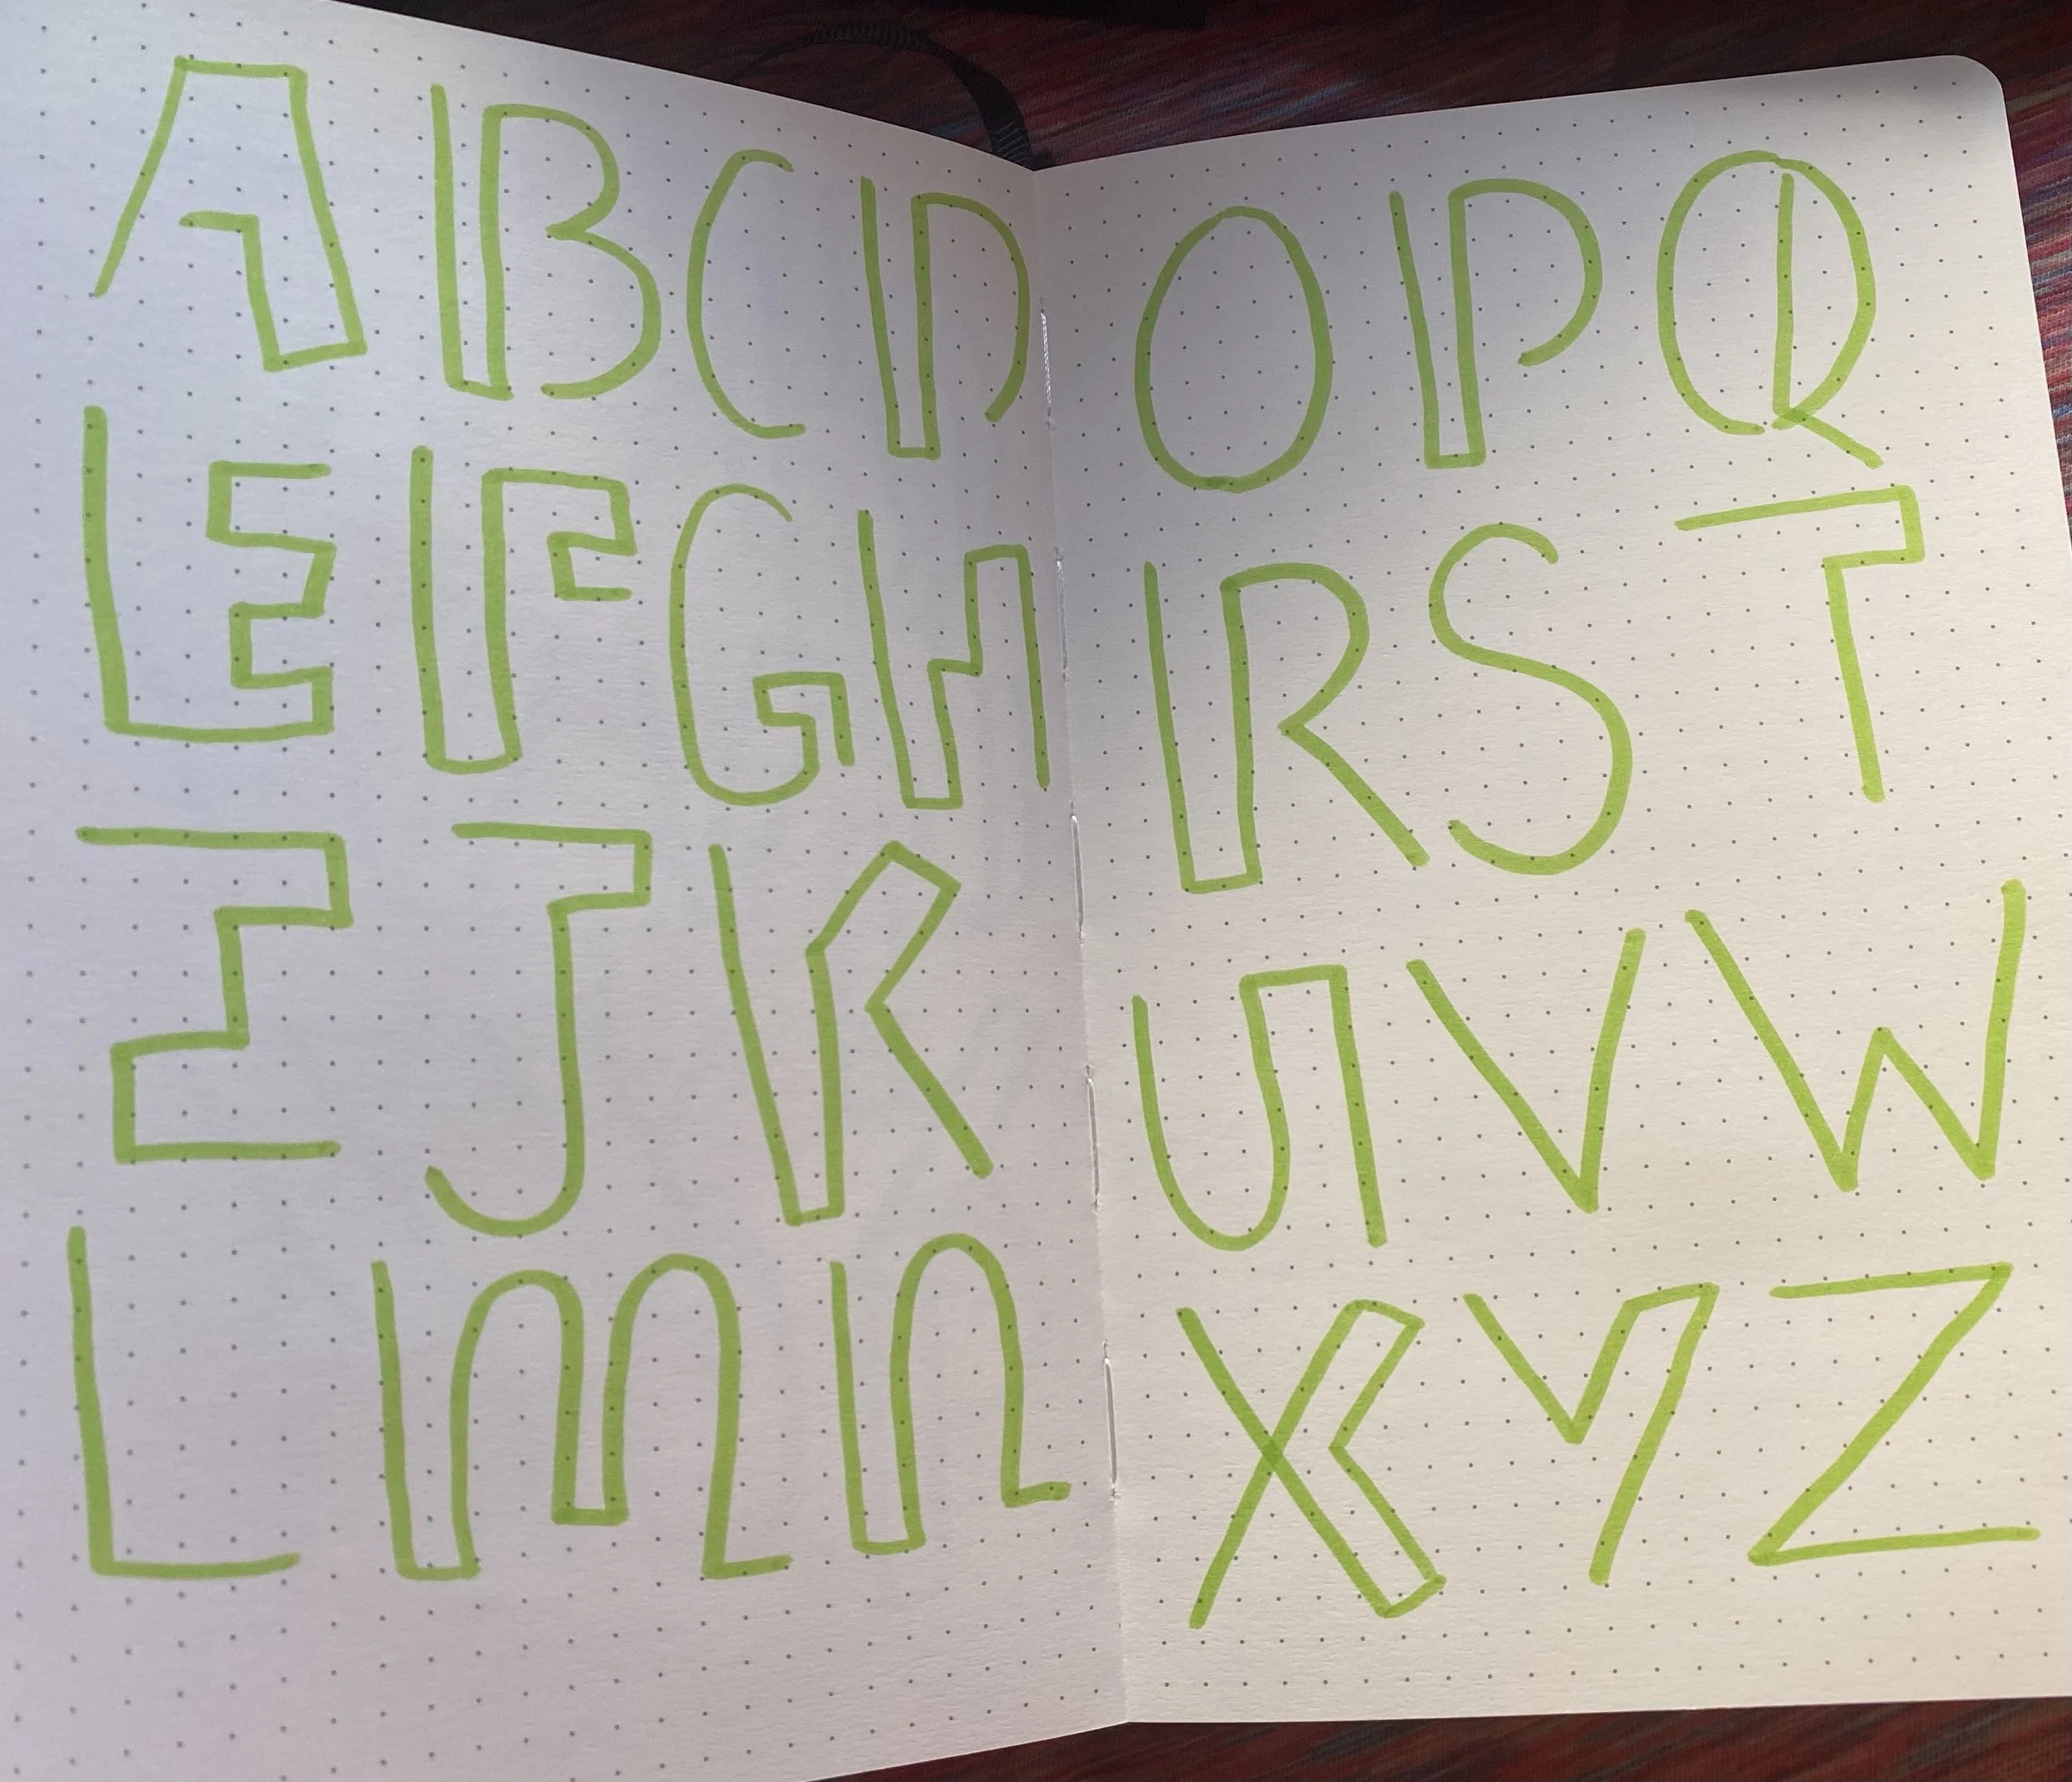 A B C D
E F G H
I J K
L m n
O P Q
R S T
U V W
X Y Z